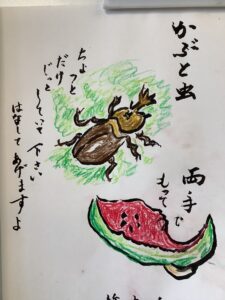 かぶと虫
ちょっと
だけ
じっと
していて下さい
はなしてあげますよ
両手で
もって